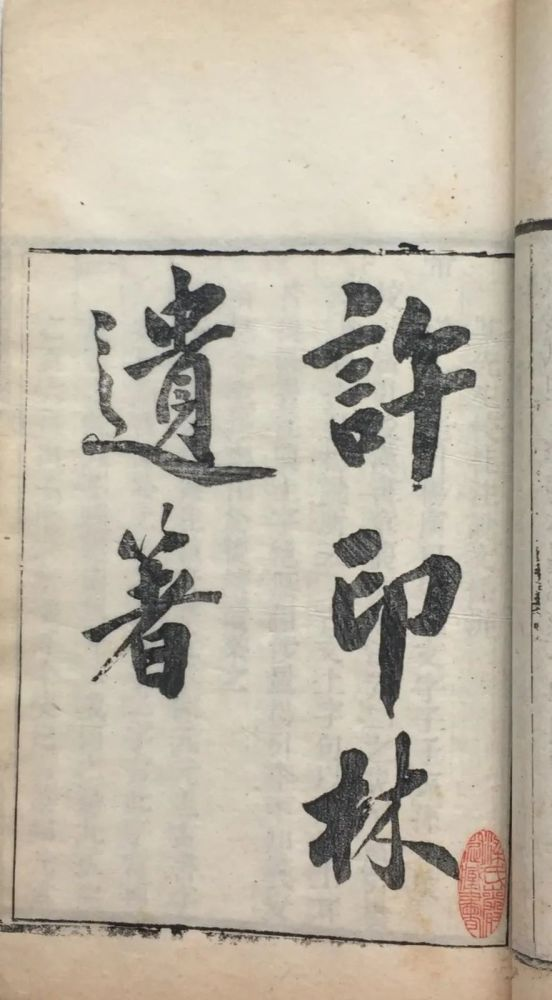 許印林
遺著